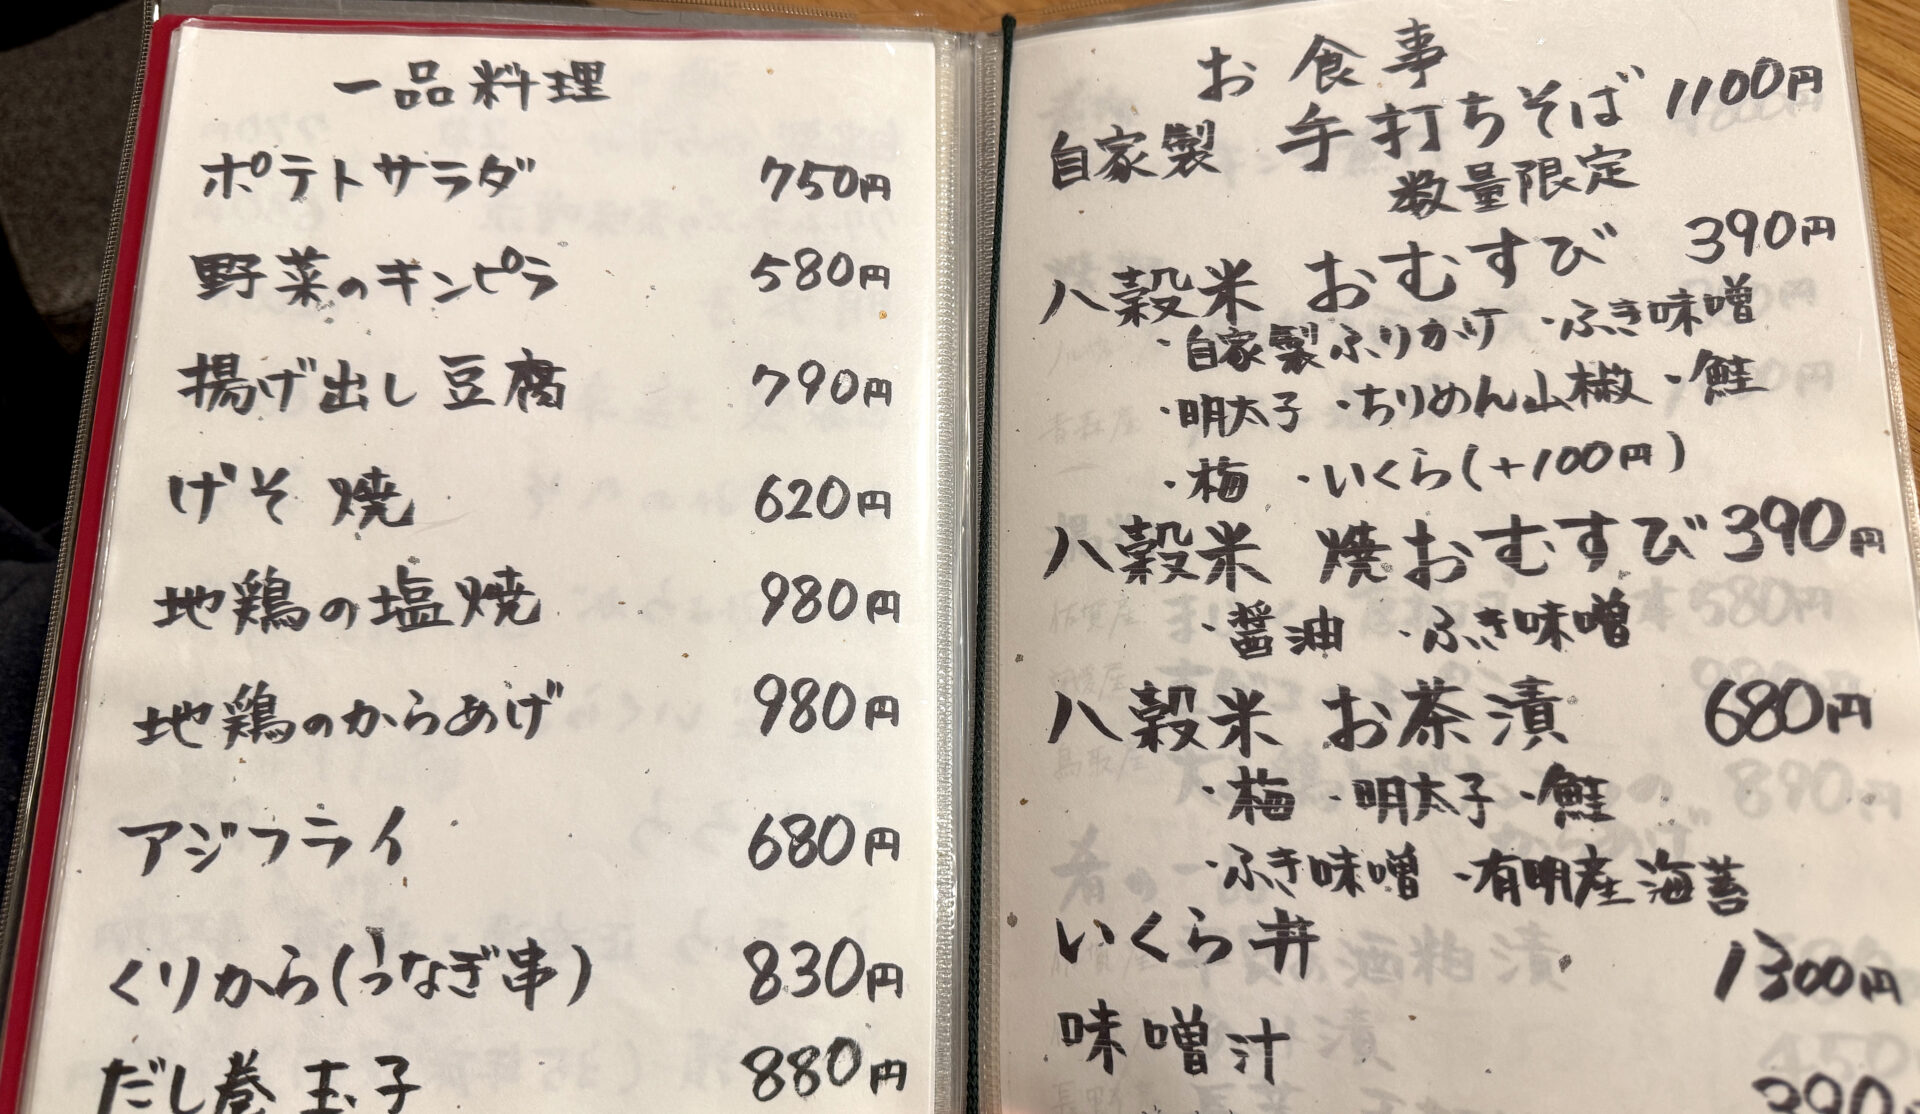 一品料理
ポテトサラダ 750円
野菜のキンピラ 580円
揚げ出し豆腐 790円
げそ焼 620円
地鶏の塩焼 980円
地鶏のからあげ 980円
アジフライ 680円
くりから(うなぎ串) 830円
だし巻玉子 880円
お食事
自家製 手打ちそば 1100円
数量限定
八穀米 おむすび 390円
・自家製ふりかけ ・ふき味噌
・明太子 ・ちりめん山椒 ・鮭
・梅 ・いくら(+100円)
八穀米 焼おむすび 390円
・醤油 ・ふき味噌
八穀米 お茶漬 680円
・梅 ・明太子 ・鮭
・ふき味噌 ・有明産海苔
いくら丼 1300円
味噌汁 390